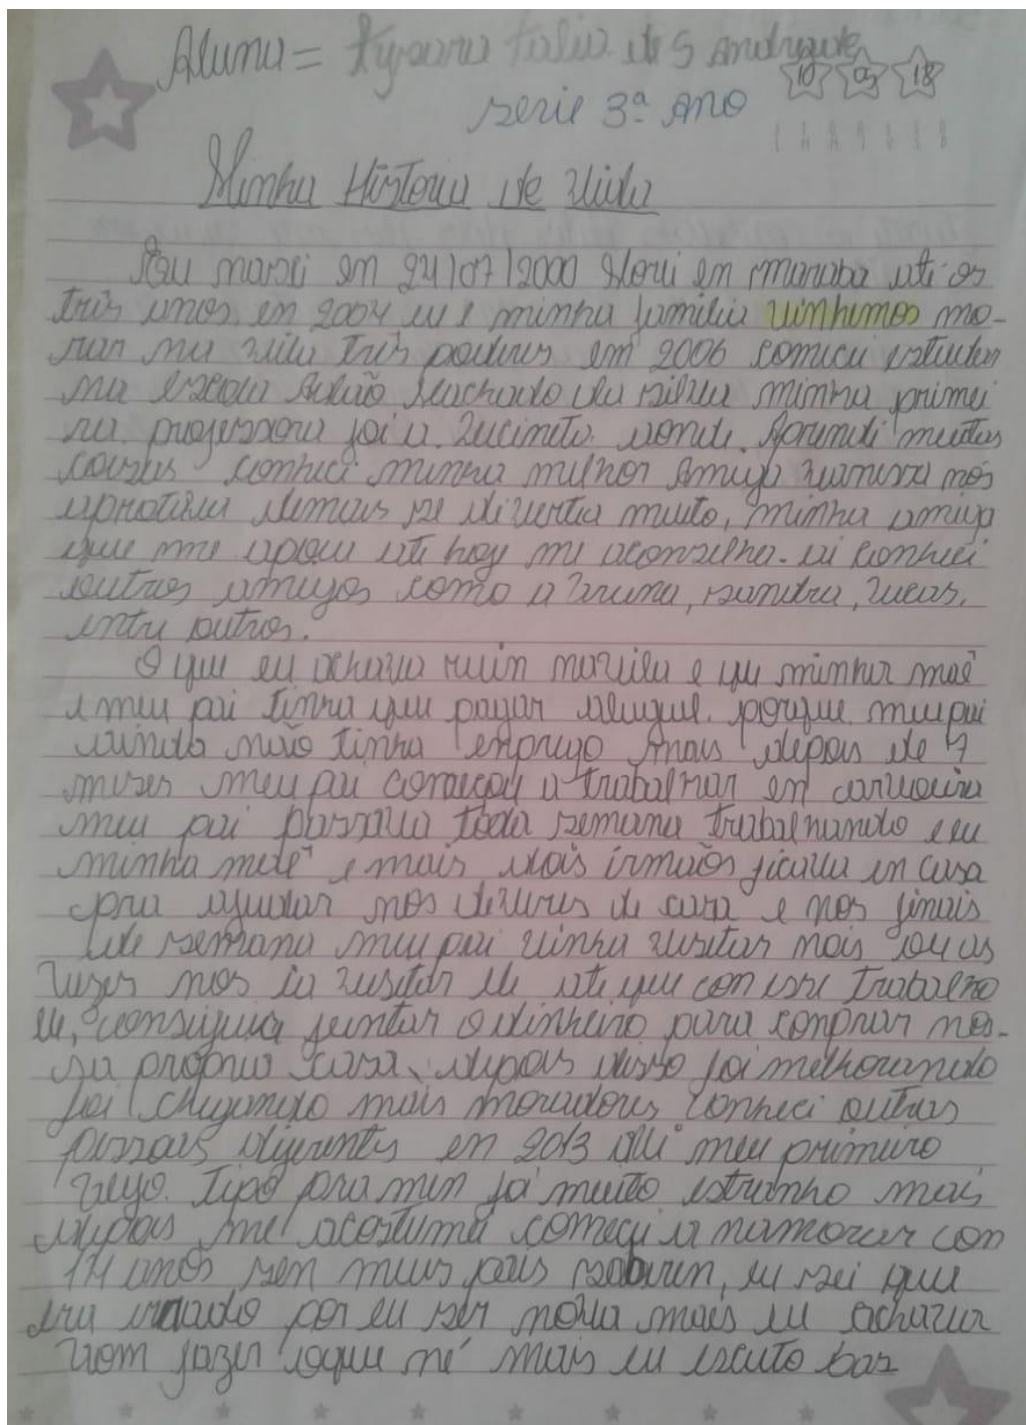 Aluna = Talia de S Andrade
10 05 18
serie 3ª Ano
Minha Historia de Vida
Eu nasci em 24/07/2000 Morei em maraba até os
três anos. em 2004 eu e minha familia vinhemos mo-
rar na vila três poderes em 2006 comecei estudar
na escola Adão Machado da silva minha primei
ra professora foi a Lucineta. aonde Aprendi muitas
coisas conheci minha milhor Amiga vanessa nós
aprotava demais se divertia muito, minha amiga
que me apoia ate hoje me aconselha. ai conheci
outros amigos como a Bruna, sandra, Lucas,
entre outros.
O que eu achava ruin na vila e que minha maẽ
e meu pai tinha que pagar aluguel. porque meu pai
ainda não tinha enprego mais depois de 7
meses meu pai começou a trabalhar en carvoeira
meu pai passava toda semana trabalhando e eu
minha mãe e mais dois irmãos ficava en casa
pra ajudar nos deveres de casa e nos finais
de semana meu pai vinha visitar nois ou as
vezes nos ia visitar ele ate que con esse trabalho
ele, consiguiu juntar o dinheiro para conprar nos-
sa propria casa, depois disso foi melhorando
foi chegando mais moradores conheci outras
pessoas diferentes en 2013 dei meu primeiro
beijo. tipo pra min foi muito estranho mais
depois me acostumei comecei a namorar con
14 anos sen meus pais saberen, eu sei que
era errado por eu ser nova mais eu achava
bom fazer oque né mais eu escuto bas